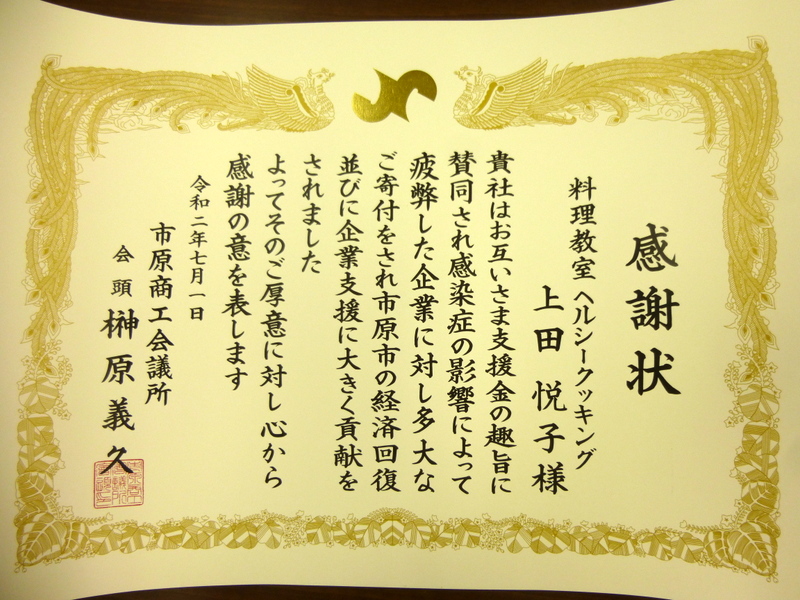 感謝状
料理教室 ヘルシークッキング
上田 悦子様
貴社はお互いさま支援金の趣旨に
賛同され感染症の影響によって
疲弊した企業に対し多大な
ご寄付をされ市原市の経済回復
並びに企業支援に大きく貢献を
されました
よってそのご厚意に対し心から
感謝の意を表します
令和二年七月一日
市原商工会議所
会頭 榊原義久